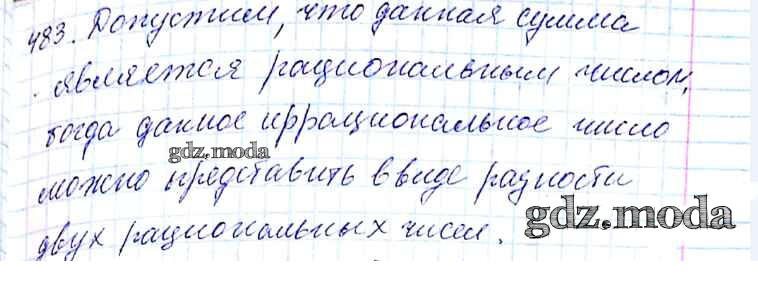 483. Допустим, что данная сумма
является рациональным числом,
тогда данное иррациональное число
gdz.moda
можно представить в виде разности
gdz.moda
двух рациональных чисел.